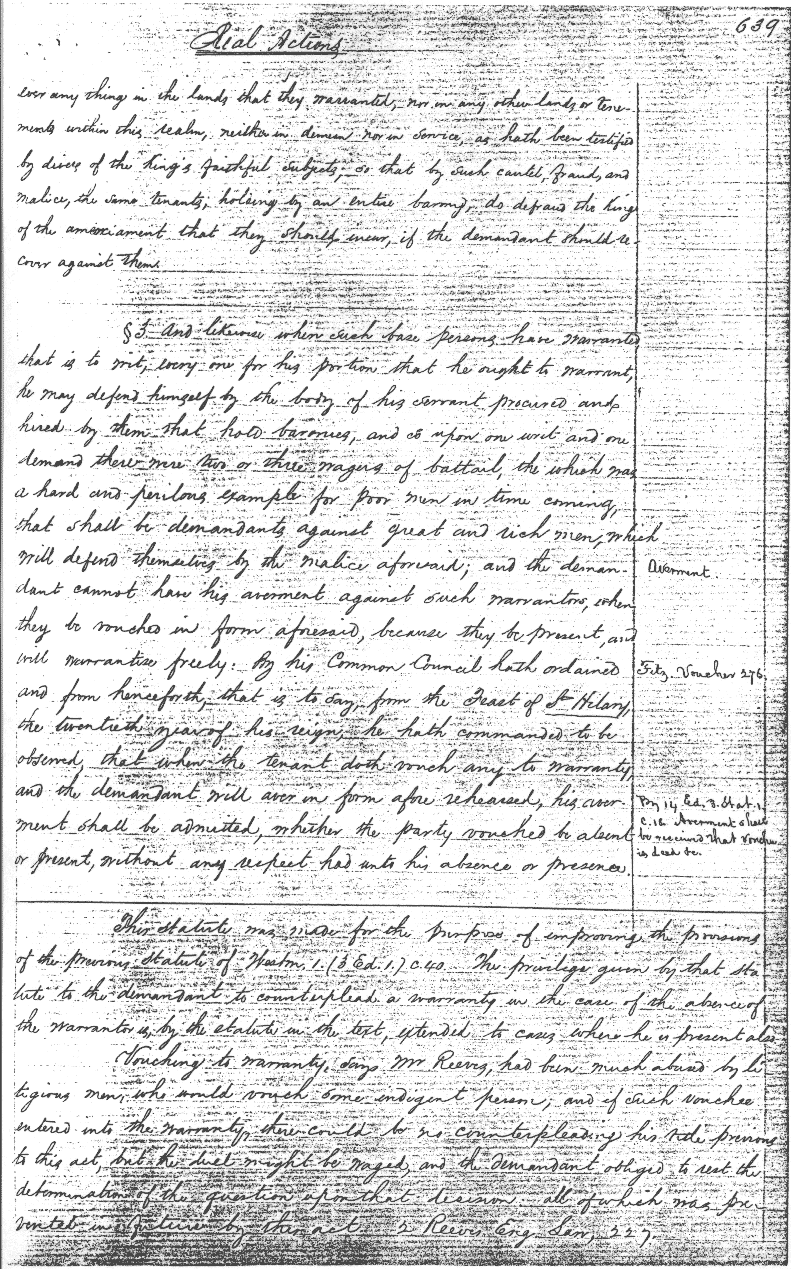 639
Real Actions
ever any thing in the lands that they warranted, nor in any other lands or tene-
ments within this realm, neither in demesn nor in service, as hath been testified
by divers of the King's faithful subjects; so that by such cautel, fraud, and
malice, the same tenants, holding by an entire barony, do defraud the King
of the amerciament that they should incur, if the demandant should re-
cover against them.
§ 3. And likewise when such base persons have warranted
that is to wit, every one for his portion that he ought to warrant,
he may defend himself by the body of his servant procured and
hired by them that hold baronies, and so upon one writ and one
demand there were two or three wagers of battail, the which was
a hard and perilous example for poor men in time coming,
that shall be demandants against great and rich men, which
will defend themselves by the malice aforesaid; and the deman-
dant cannot have his averment against such warrantors, when
they be vouched in form aforesaid, because they be present, and
will warrantise freely: By his Common Council hath ordained
and from henceforth, that is to say, from the Feast of St Hilary,
the twentieth year of his reign, he hath commanded to be
observed, that when the tenant doth vouch any to warranty,
and the demandant will aver in form afore rehearsed, his aver-
ment shall be admitted, whether the party vouched be absent
or present, without any respect had unto his absence or presence.
Averment.
Fitz. Voucher 276.
By 14 Ed. 3. Stat. 1.
c. 18. Averment shall
be received that Vouchee
is dead &c.
This statute was made for the purpose of improving the provisions
of the previous statute of Westm. 1. (3 Ed. 1.) c. 40. The privilege given by that sta
tute to the demandant to counterplead a warranty in the case of the absence of
the warrantor is, by the statute in the text, extended to cases where he is present also
Vouching to warranty, says Mr Reeves, had been much abused by li
tigious men, who would vouch some indigent person; and if such vouchee
entered into the warranty, there could be no counterpleading his title previous
to this act, but the duel might be waged, and the demandant obliged to rest the
determination of the question upon that decision. all of which was pre-
vented in future by this act. 2 Reeves Eng. Law, 227.